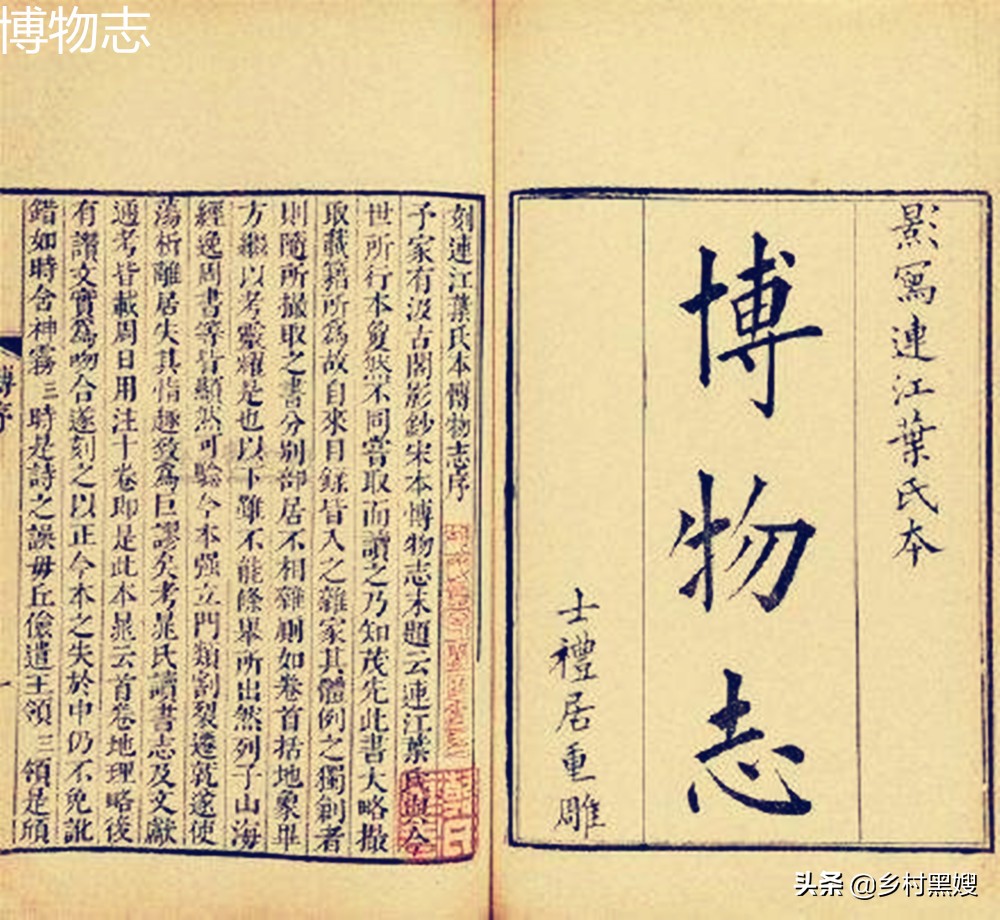 博物志
影寫連江葉氏本
博物志
士禮居重雕
刻連江葉氏本博物志序
予家有汲古閣影鈔宋本博物志末題云連江葉氏與今
世所行本夐然不同嘗取而讀之乃知茂先此書大略撮
取載籍所為故自來目錄皆入之雜家其體例之獨創者
則隨所撮取之書分別部居不相雜廁如卷首括地象畢
方繼以考靈耀是也以下雖不能條舉所出然列子山海
經逸周書等皆顯然可驗今本强立門類割裂遷就遂使
蕩析離居失其指趣致為巨謬矣考晁氏讀書志及文獻
通考皆載周日用注十卷即是此本晁云首卷地理略後
有讚文實為吻合遂刻之以正今本之失於中仍不免訛
錯如時含神霧三時是詩之誤毋丘儉遣王領三領是頎
博序
头条 @乡村黑嫂